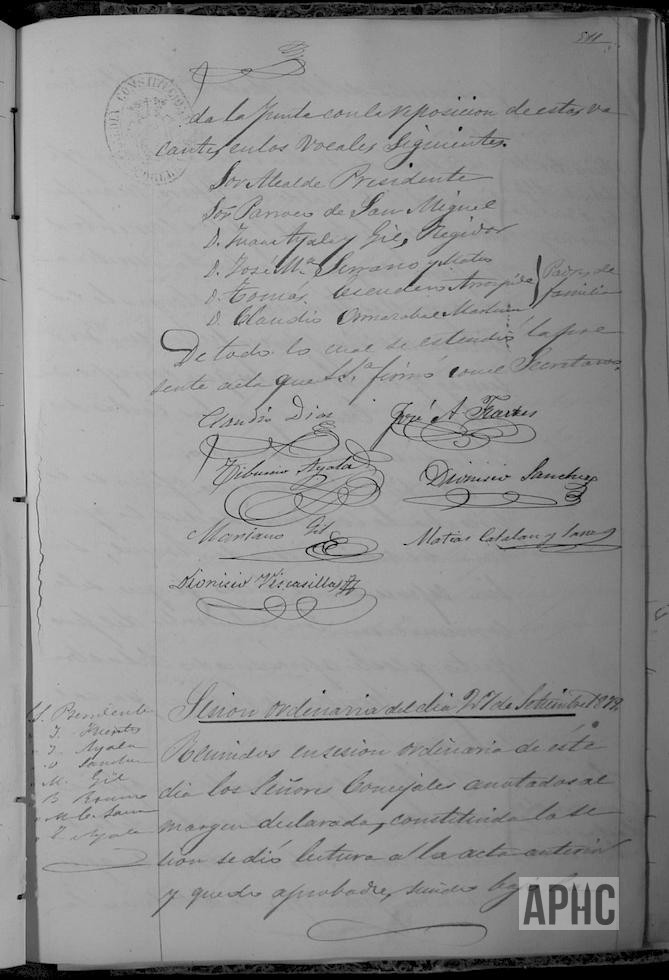 511
da la Junta con la reposicion de estas va
cantes en los Vocales siguientes.
Sor Alcalde Presidente
Sor Parroco de San Miguel
D. Juan Ayala y Gil, Regidor
D. José Mª Serrano y Mateo
D. Tomás Escudero
Padres de
familia
D. Claudio
De todo lo cual se estendió la pre
sente acta que S.S.ª firmó con el Secretario.
Claudio Dias
José A. Fuertes
Tiburcio Ayala
Dionisio Sanchez
Mariano Gil
Matias Catalan y
Dionisio Viscasillas
Sesion ordinaria del dia 27 de Setiembre 1879.
S. Presidente
Fuertes
Ayala
Sanchez
M. Gil
M. C.
Ayala
Reunidos en sesion ordinaria de éste
dia los Señores Concejales anotados al
margen declarada, constituida la se
sion se dió lectura á la acta anterior
y quedó aprobada,
APHC